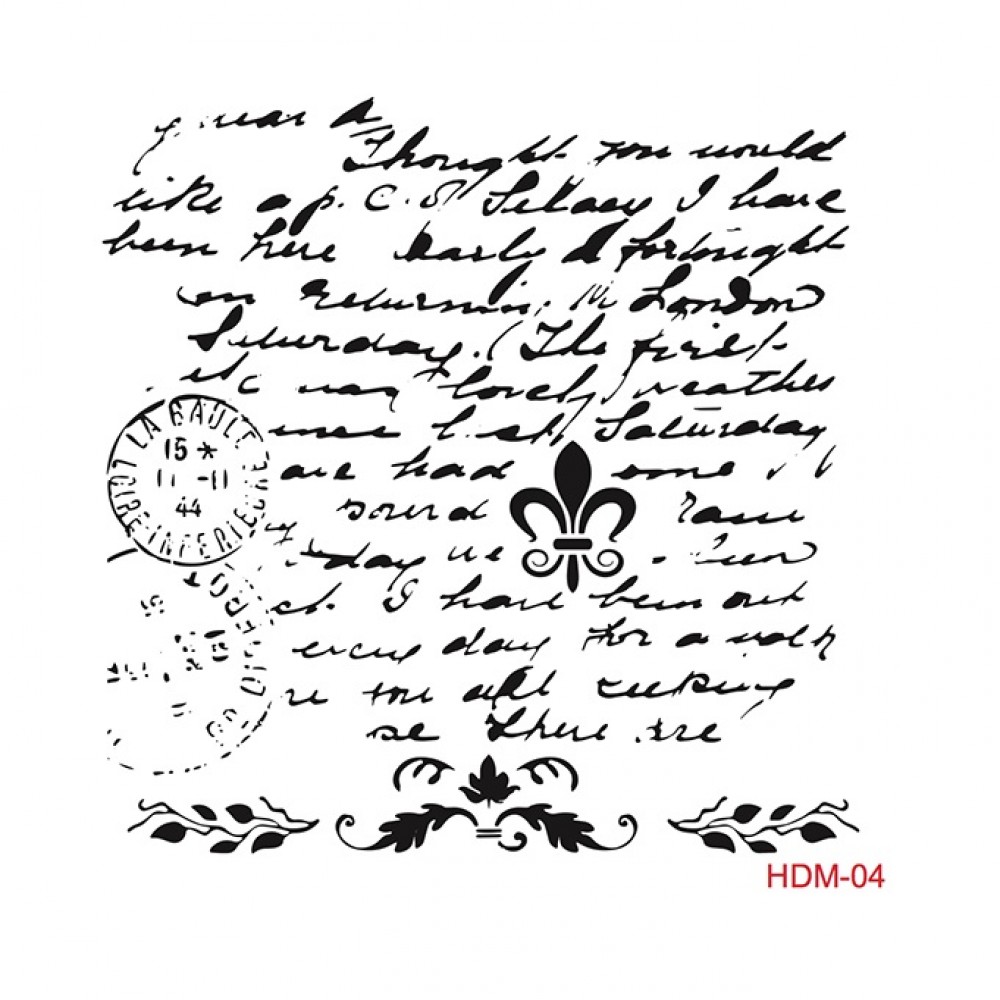 Dear A
Thought you would
like a p. c. of Selsey I have
been here nearly a fortnight
am returning to London
Saturday. (The first
was lovely weather
since last Saturday
we have had some
sound rain
day we been
I have been out
every day for a walk
are you all keeping
se there are
LA BAULE
15 *
11 -11
44
LOIRE-INFERIEURE
HDM-04